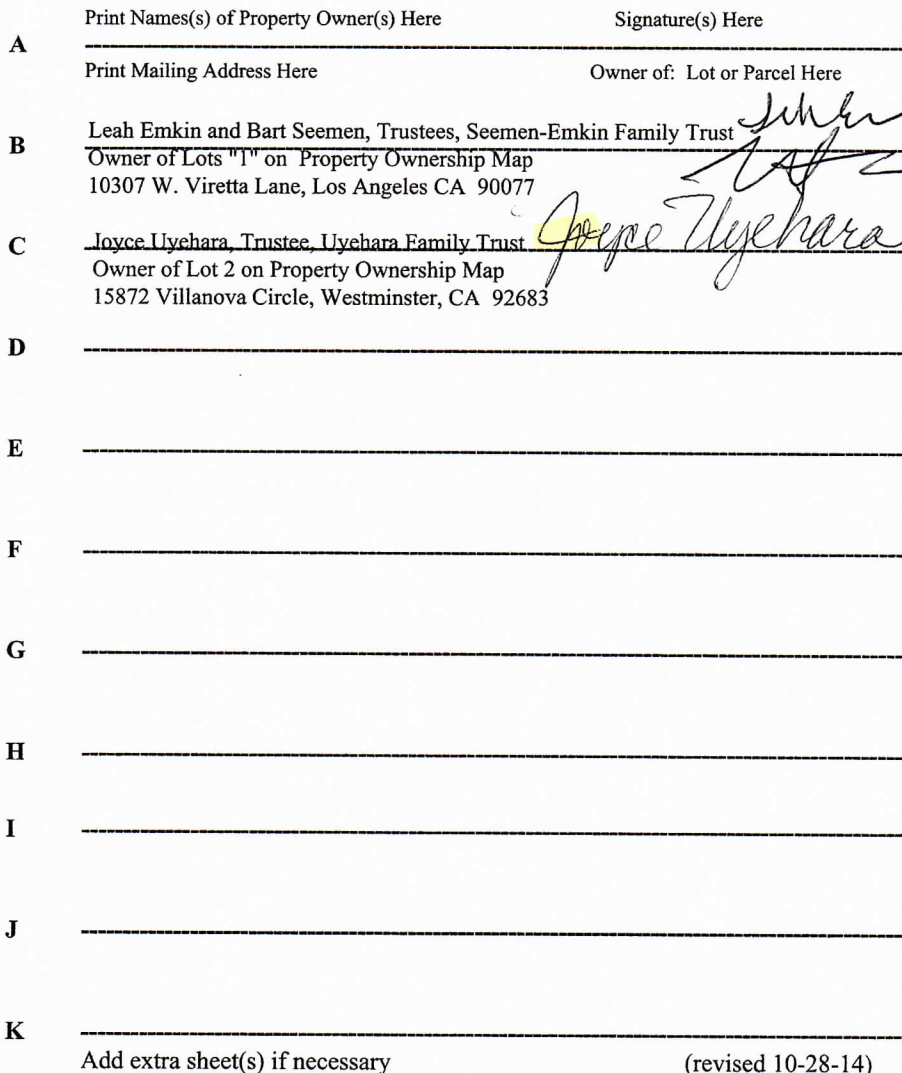 Print Names(s) of Property Owner(s) Here Signature(s) Here
A
Print Mailing Address Here Owner of: Lot or Parcel Here
B Leah Emkin and Bart Seemen, Trustees, Seemen-Emkin Family Trust
Owner of Lots "1" on Property Ownership Map
10307 W. Viretta Lane, Los Angeles CA 90077
C Joyce Uyehara, Trustee, Uyehara Family Trust Joyce Uyehara
Owner of Lot 2 on Property Ownership Map
15872 Villanova Circle, Westminster, CA 92683
D
E
F
G
H
I
J
K
Add extra sheet(s) if necessary (revised 10-28-14)